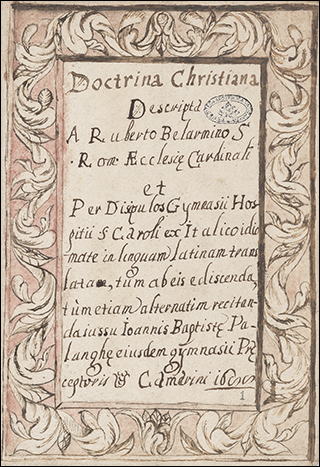 Doctrina Christiana
Descripta
A Ruberto Belarmino S
. Rom Æcclesię Cardinali
et
Per Dispulos Gymnasii Hos
pitii S Caroli ex Italico idio
mate in linguam latinam trans
latam, tum ab eis ediscenda,
tùm etiam alternatim recitan
da iussu Ioannis Baptistę Pa-
langhę eiusdem gymnasii Prę
ceptoris Camerini
1